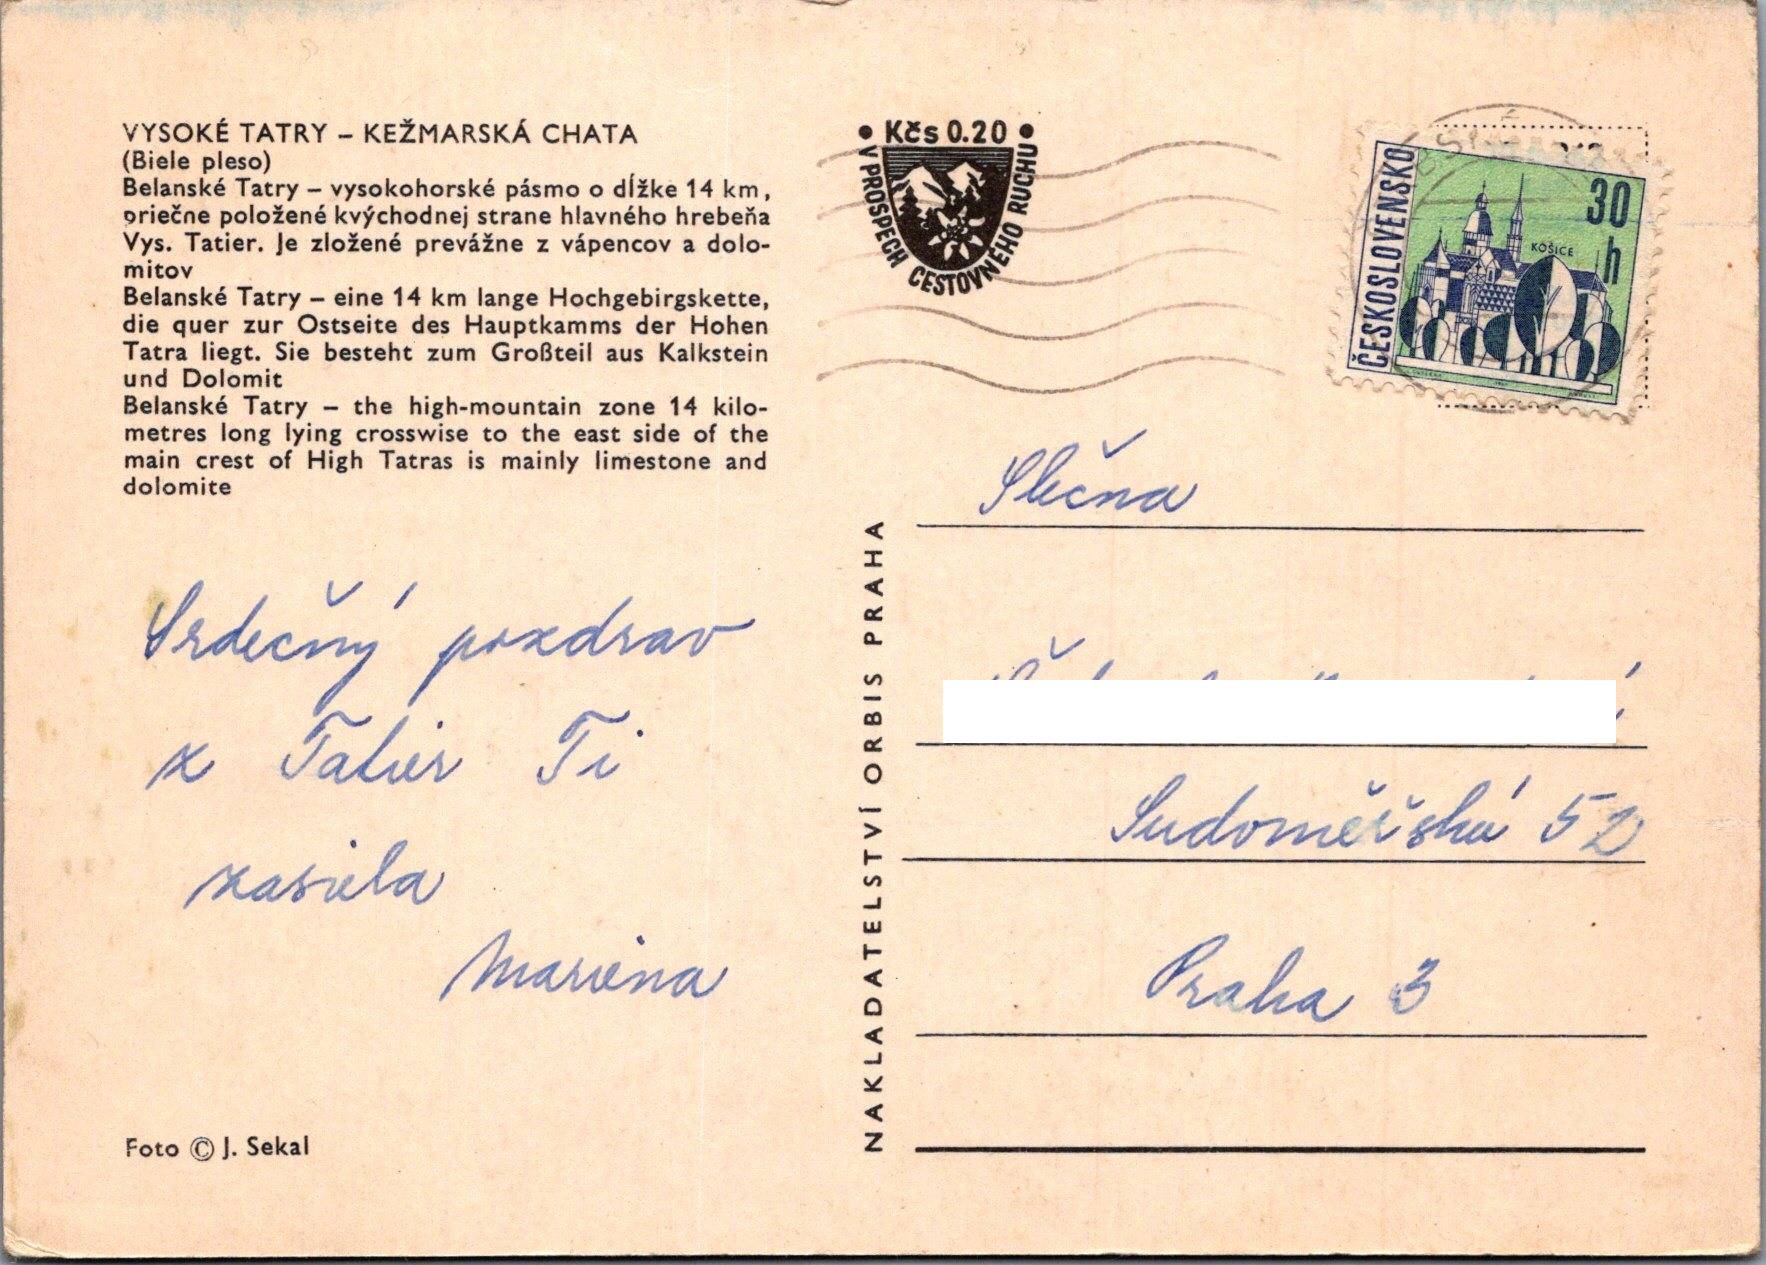 VYSOKÉ TATRY – KEŽMARSKÁ CHATA
(Biele pleso)
Belanské Tatry – vysokohorské pásmo o dĺžke 14 km,
priečne položené kvýchodnej strane hlavného hrebeňa
Vys. Tatier. Je zložené prevážne z vápencov a dolo-
mitov
Belanské Tatry – eine 14 km lange Hochgebirgskette,
die quer zur Ostseite des Hauptkamms der Hohen
Tatra liegt. Sie besteht zum Großteil aus Kalkstein
und Dolomit
Belanské Tatry – the high-mountain zone 14 kilo-
metres long lying crosswise to the east side of the
main crest of High Tatras is mainly limestone and
dolomite
Srdečný pozdrav
z Tatier Ti
zasiela
Mariena
Foto © J. Sekal
NAKLADATELSTVÍ ORBIS PRAHA
• Kčs 0.20 •
V PROSPECH CESTOVNÉHO RUCHU
ČESKOSLOVENSKO
30
h
KOŠICE
Slečna
Sudoměřská 52
Praha 3